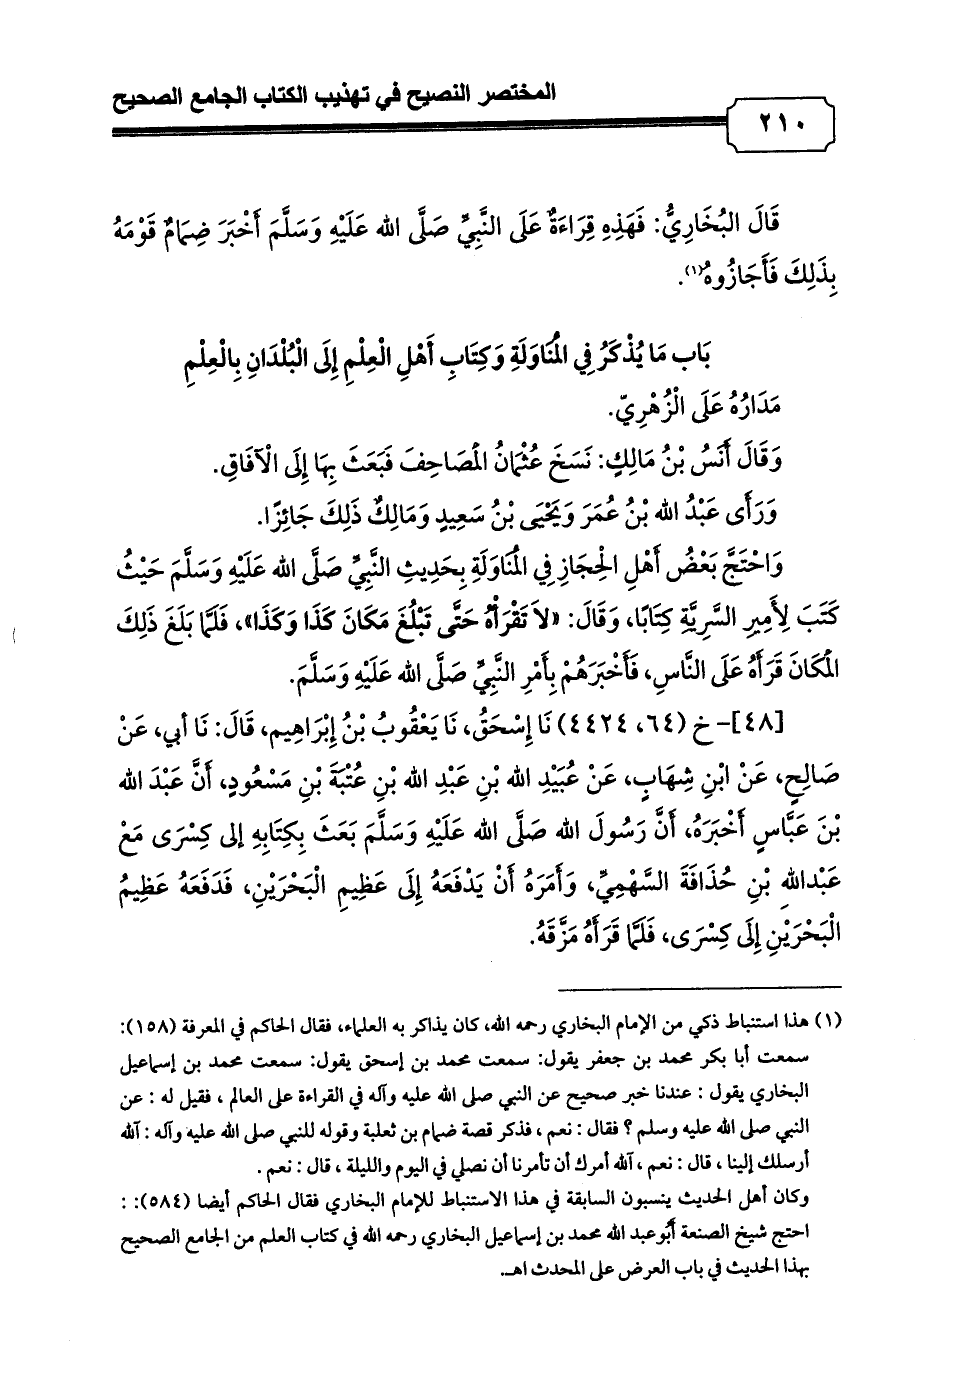 المختصر النصيح في تهذيب الكتاب الجامع الصحيح
٢١٠
قَالَ البُخَارِيُّ: فَهَذِهِ قِرَاءَةٌ عَلَى النَّبِيِّ صَلَّى الله عَلَيْهِ وَسَلَّمَ أَخْبَرَ ضِمَامٌ قَوْمَهُ
بِذَلِكَ فَأَجَازُوهُ(١).
بَاب مَا يُذْكَرُ فِي المُنَاوَلَةِ وَكِتَابِ أَهْلِ الْعِلْمِ إِلَى الْبُلْدَانِ بِالْعِلْمِ
مَدَارُهُ عَلَى الْزُهْرِيّ.
وَقَالَ أَنَسُ بْنُ مَالِكٍ: نَسَخَ عُثْمَانُ المَصَاحِفَ فَبَعَثَ بِهَا إِلَى الْآفَاقِ.
وَرَأَى عَبْدُ الله بْنُ عُمَرَ وَيَحْيَى بْنُ سَعِيدٍ وَمَالِكٌ ذَلِكَ جَائِزًا.
وَاحْتَجَّ بَعْضُ أَهْلِ الْحِجَازِ فِي المُنَاوَلَةِ بِحَدِيثِ النَّبِيِّ صَلَّى الله عَلَيْهِ وَسَلَّمَ حَيْثُ
كَتَبَ لِأَمِيرِ السَّرِيَّةِ كِتَابًا، وَقَالَ: «لاَ تَقْرَأْهُ حَتَّى تَبْلُغَ مَكَانَ كَذَا وَكَذَا»، فَلَمَّا بَلَغَ ذَلِكَ
المَكَانَ قَرَأَهُ عَلَى النَّاسِ، فَأَخْبَرَهُمْ بِأَمْرِ النَّبِيِّ صَلَّى الله عَلَيْهِ وَسَلَّمَ.
[٤٨]- خ (٦٤، ٤٤٢٤) نَا إِسْحَقُ، نَا يَعْقُوبُ بْنُ إِبْرَاهِيم، قَالَ: نَا أَبي، عَنْ
صَالِحٍ، عَنْ ابْنِ شِهَابٍ، عَنْ عُبَيْدِ الله بْنِ عَبْدِ الله بْنِ عُتْبَةَ بْنِ مَسْعُودٍ، أَنَّ عَبْدَ الله
بْنَ عَبَّاسٍ أَخْبَرَهُ، أَنَّ رَسُولَ الله صَلَّى الله عَلَيْهِ وَسَلَّمَ بَعَثَ بِكِتَابِهِ إلى كِسْرَى مَعْ
عَبْدالله بْنِ حُذَافَةَ السَّهْمِيِّ، وَأَمَرَهُ أَنْ يَدْفَعَهُ إِلَى عَظِيمِ الْبَحْرَيْنِ، فَدَفَعَهُ عَظِيمُ
الْبَحْرَيْنِ إِلَى كِسْرَى، فَلَمَّا قَرَأَهُ مَزَّقَهُ.
(١) هذا استنباط ذكي من الإمام البخاري رحمه الله، كان يذاكر به العلماء، فقال الحاكم في المعرفة (١٥٨):
سمعت أبا بكر محمد بن جعفر يقول: سمعت محمد بن إسحق يقول: سمعت محمد بن إسماعيل
البخاري يقول : عندنا خبر صحيح عن النبي صلى الله عليه وآله في القراءة على العالم ، فقيل له : عن
النبي صلى الله عليه وسلم ؟ فقال : نعم ، فذكر قصة ضمام بن ثعلبة وقوله للنبي صلى الله عليه وآله : آلله
أرسلك إلينا ، قال : نعم ، آلله أمرك أن تأمرنا أن نصلي في اليوم والليلة ، قال : نعم .
وكان أهل الحديث ينسبون السابقة في هذا الاستنباط للإمام البخاري فقال الحاكم أيضا (٥٨٤): :
احتج شيخ الصنعة أبُوعبد الله محمد بن إسماعيل البخاري رحمه الله في كتاب العلم من الجامع الصحيح
بهذا الحديث في باب العرض على المحدث اهـ.